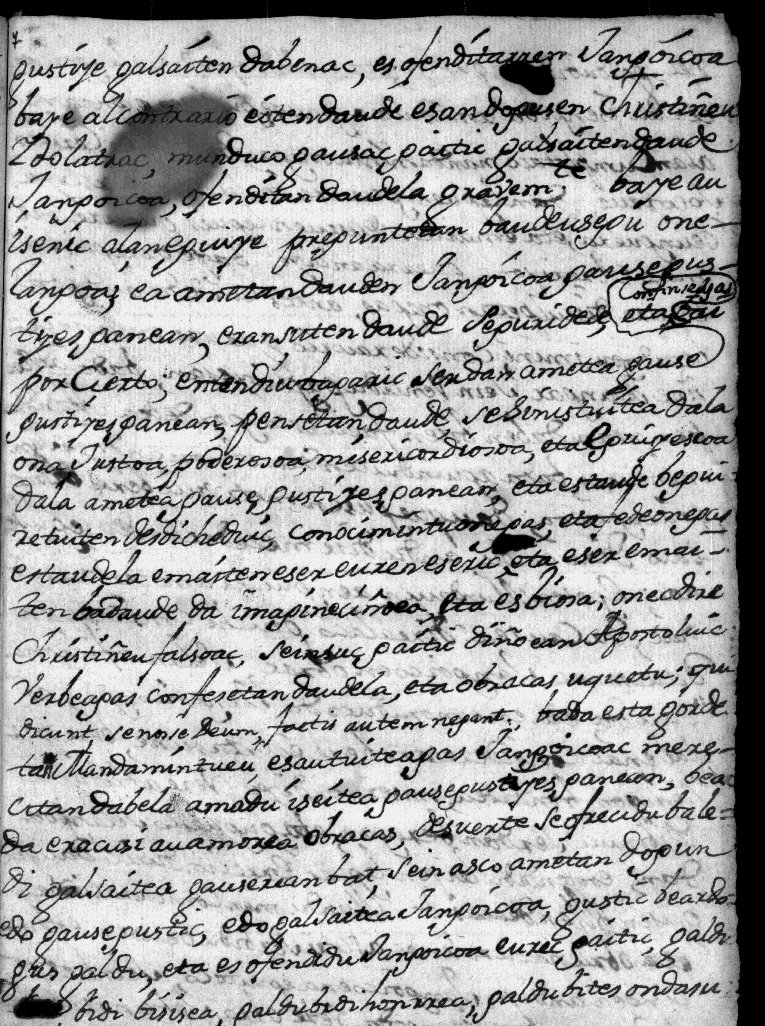 gustiye galsaiten dabenac, es ofenditarren Jangoicoa
baye alcontrario eiten daude esan dogusen Christiñeu
Idolatrac, munduco gausac gaitic galsaiten daude
Jangoicoa, ofenditan daudela gravem.te baye au
isenic alan eguiye preguntetan baudeusegu one-
langoai, ea ametan dauden Jangoicoa gausegus-
tiyes ganean, eransuten daude seguridede, eta
Confinsegas
por Cierto; entendiubagaric serdan ametea gause
gustiyes ganean, pensetan daude sesinistuitea dala
ona Justoa, poderosoa, misericordiosoa, eta Eguiyescoa
dala ametea gause gustiyes ganean, eta estaude begui-
retuiten desdicheduic, conocimintuonegas, eta edeonegas
estaudela emaiten eser euren eseric, eta eser emai-
ten badaude da imagineciñoea, eta esbiora; onec dire
Christiñeu falsoac, seinsuc gaitic diño ean Apostoluic
Verbeagas confesetan daudela, eta obracas uquetu; qui
dicunt se nosse Deum, factis autem negant: bada esta gorde
tan Mandamintueu esautuiteagas Jangoicoac mere-
citan dabela amadu iseitea gausegustiyes ganean, bea
da eracusi auamorea obracas, desuerte se ofrecidu bale-
di galsaitea gauserian bat, seinasco ametan dogun
edo gausegustic, edo galsaitea Jangoicoa, gustic beardo-
gus galdu, eta es ofendidu Jangoicoa eurec gaitic, galdu
bidi bisisea, galdu bidi honrrea, galdu bites ondasu